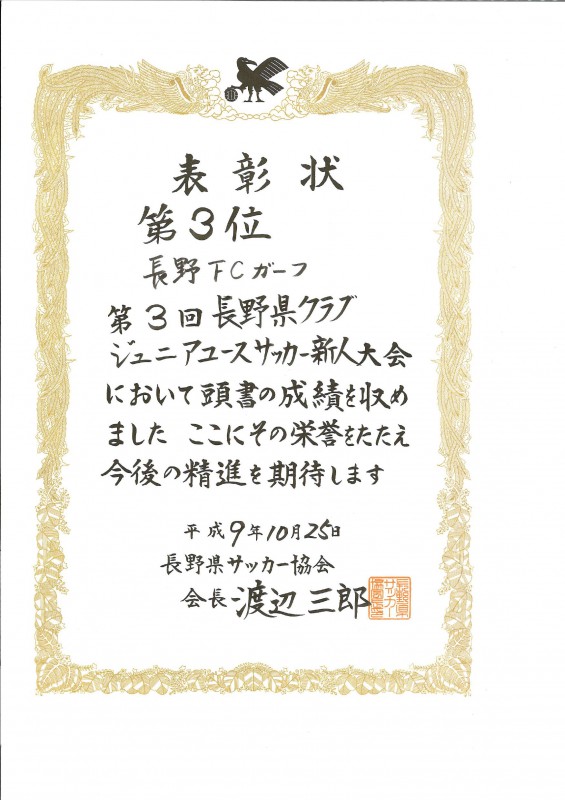 表彰状
第3位
長野FCガーフ
第3回長野県クラブ
ジュニアユースサッカー新人大会
において頭書の成績を収め
ました ここにその栄誉をたたえ
今後の精進を期待します
平成9年10月25日
長野県サッカー協会
会長 渡辺三郎